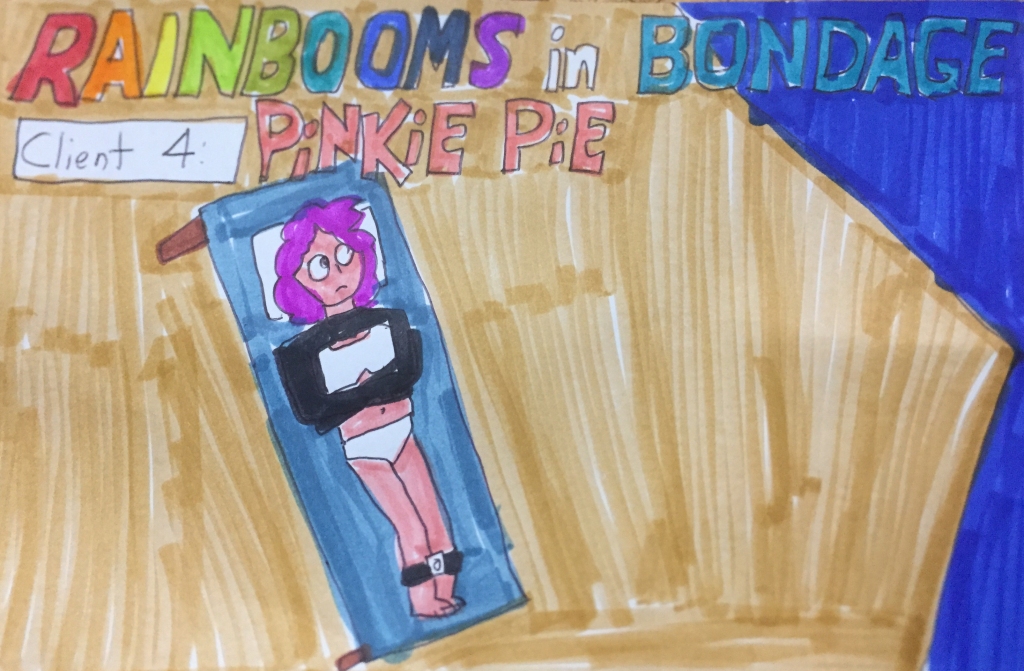 RAINBOOMS in BONDAGE
Client 4: PiNKiE PiE